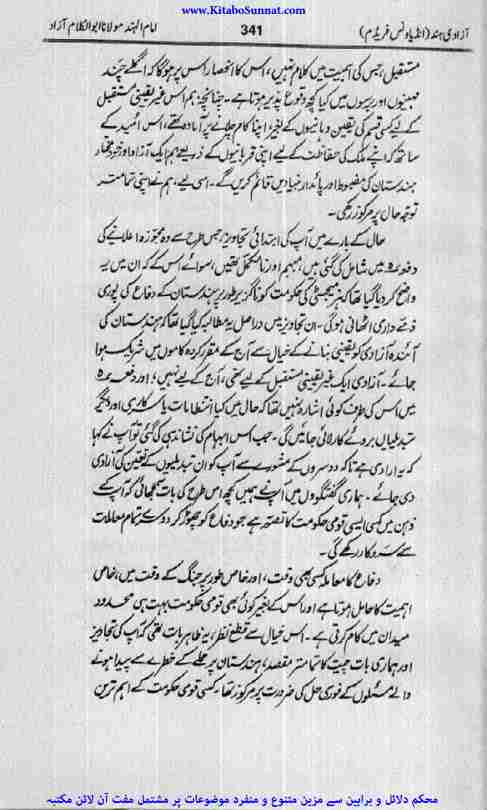 www.KitaboSunnat.com
آزادی ہند (انڈیا ونس فریڈم)
341
امام الہند مولانا ابوالکلام آزاد
مستقبل، جس کی اہمیت میں کلام نہیں، اس کا انحصار اس پر ہوگا کہ اگلے چند
مہینوں اور برسوں میں کیا کچھ وقوع پذیر ہوتا ہے۔ چنانچہ ہم اس غیر یقینی مستقبل
کے لیے کسی قسم کی یقین دہانیوں کے بغیر اپنا کام چلانے پر آمادہ تھے، اس امید کے
ساتھ کہ اپنے ملک کی حفاظت کے لیے اپنی قربانیوں کے ذریعے ہم ایک آزاد اور خود مختار
ہندستان کی مضبوط اور پائدار بنیادیں قائم کریں گے۔ اسی لیے، ہم نے اپنی تمام تر
توجہ حال پر مرکوز رکھی۔
حال کے بارے میں آپ کی ابتدائی تجاویز، جس طرح سے وہ مجوزہ اعلانیے کی
دفعہ میں شامل کی گئی ہیں، مبہم اور نامکمل تھیں، سوائے اس کے کہ ان میں یہ
واضح کر دیا گیا تھا کہ ہز میجسٹی کی حکومت کو ناگزیر طور پر ہندستان کے دفاع کی پوری
ذمے داری اٹھانی ہوگی۔ ان تجاویز میں دراصل یہ مطالبہ کیا گیا تھا کہ ہندستان کی
آئندہ آزادی کو یقینی بنانے کے خیال سے آج کے مقرر کردہ کاموں میں شریک ہوا
جائے۔ آزادی ایک غیر یقینی مستقبل کے لیے تھی، آج کے لیے نہیں؛ اور دفعہ
میں اس کی طرف کوئی اشارہ نہیں تھا کہ حال میں کیا انتظامات یا سرکاری اور دیگر
تبدیلیاں بروئے کار لائی جائیں گی۔ جب اس ابہام کی نشاندہی کی گئی تو آپ نے کہا
کہ یہ ارادی ہے تاکہ دوسروں کے مشورے سے آپ کو ان تبدیلیوں کے تعین کی آزادی
دی جائے۔ ہماری گفتگوؤں میں آپ نے ہمیں کچھ اس طرح کی بات سمجھائی کہ آپ کے
ذہن میں کسی ایسی قومی حکومت کا نقشہ ہے جو دفاع کو چھوڑ کر دوسرے تمام معاملات
سے سروکار رکھے گی۔
دفاع کا معاملہ کسی بھی وقت، اور خاص طور پر جنگ کے وقت میں، خاصی
اہمیت کا حامل ہوتا ہے اور اس کے بغیر کوئی بھی قومی حکومت بہت ہی محدود
میدان میں کام کرتی ہے۔ اس خیال سے قطع نظر، یہ ظاہر بات تھی کہ آپ کی تجاویز
اور ہماری بات چیت کا تمام تر مقصد، ہندستان پر حملے کے خطرے سے پیدا ہونے
والے مسئلوں کے فوری حل کی ضرورت پر مرکوز تھا۔ کسی قومی حکومت کے اہم ترین
محکم دلائل و براہین سے مزین متنوع و منفرد موضوعات پر مشتمل مفت آن لائن مکتبہ